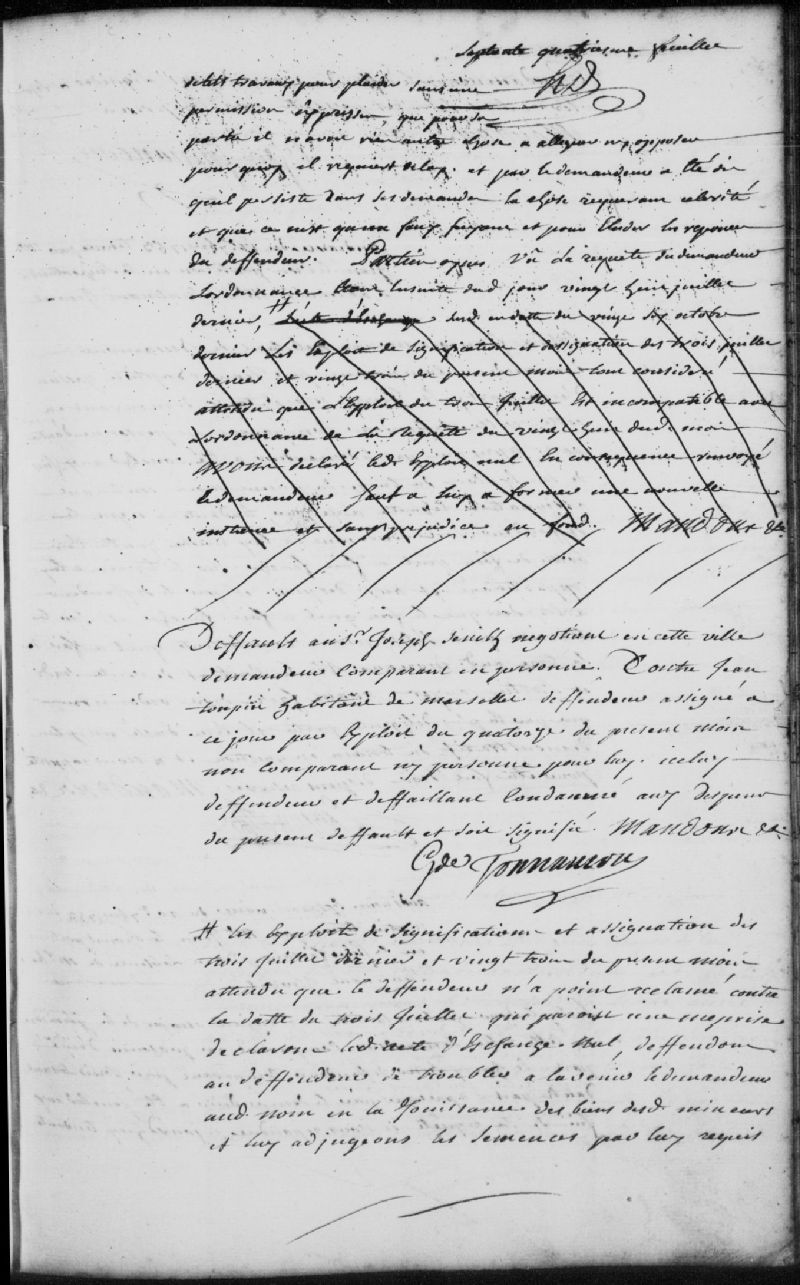 Septente quatriesme feuillet
desdits travaux pour plaider sans une
permission expresse, que pour sa
partie il n'avoit rien autre chose a alleguer ny opposer
pourquoy il requiert delay. et par le demandeur a été dit
quil persiste dans ses demandes la chose requerant celerité
et que ce n'est qu'un faux fuyant et pour Eluder les reponses
du deffendeur. Parties oyes Vû La requete du demandeur
Lordonnance Etant Ensuite dud. jour vingt huit juillet
dernier, # L'acte d'Eschange dud. en datte du vingt six octobre
dernier Les Exploit de Signification et dassignation des trois juillet
dernier et vingt trois du present mois tout consideré
attendu que L'Exploit du trois Juillet Est incompatible avec
Lordonnance de La Requête du vingt huit dud. mois
avons declaré led. Exploit nul En consequence renvoyé
le demandeur sauf a luy a former une nouvelle
instance et sans prejudice au fond. Mandons &c.
Deffault au Sr. Joseph negotiant en cette ville
demandeur Comparant en personne. Contre Jean
toupin habitant de deffendeur assigné a
ce jour par Exploit du quatorze du present mois
non Comparant ny personne pour luy. iceluy
deffendeur et deffaillant Condamné aux Depens
du present deffault et soit signifié. Mandons &c.
Gde Tonnancour
# Les Exploit de Signification et assignation des
trois Juillet dernier et vingt trois du present mois
attendu que le deffendeur n'a point reclamé contre
la datte du trois Juillet qui paroist une meprise
declarons led. acte d'Eschange Nul, deffendons
au deffendeur de troubler a lavenir le demandeur
aud. nom en la Jouissance des biens desd. mineurs
et luy adjugeons les semences par luy requis